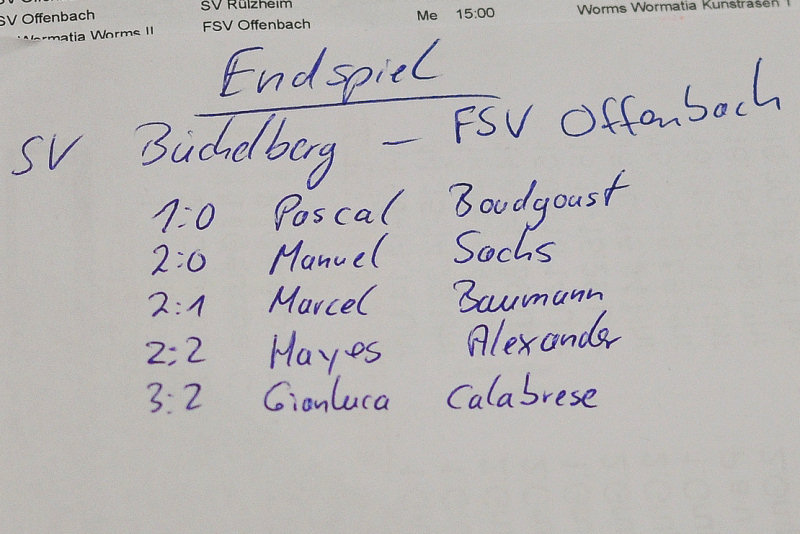 SV Rülzheim
SV Offenbach FSV Offenbach Me 15:00 Worms Wormatia Kunstrasen 1
Wormatia Worms II
Endspiel
SV Büchelberg – FSV Offenbach
1:0 Pascal Boudgoust
2:0 Manuel Sachs
2:1 Marcel Baumann
2:2 Hayes Alexander
3:2 Gianluca Calabrese